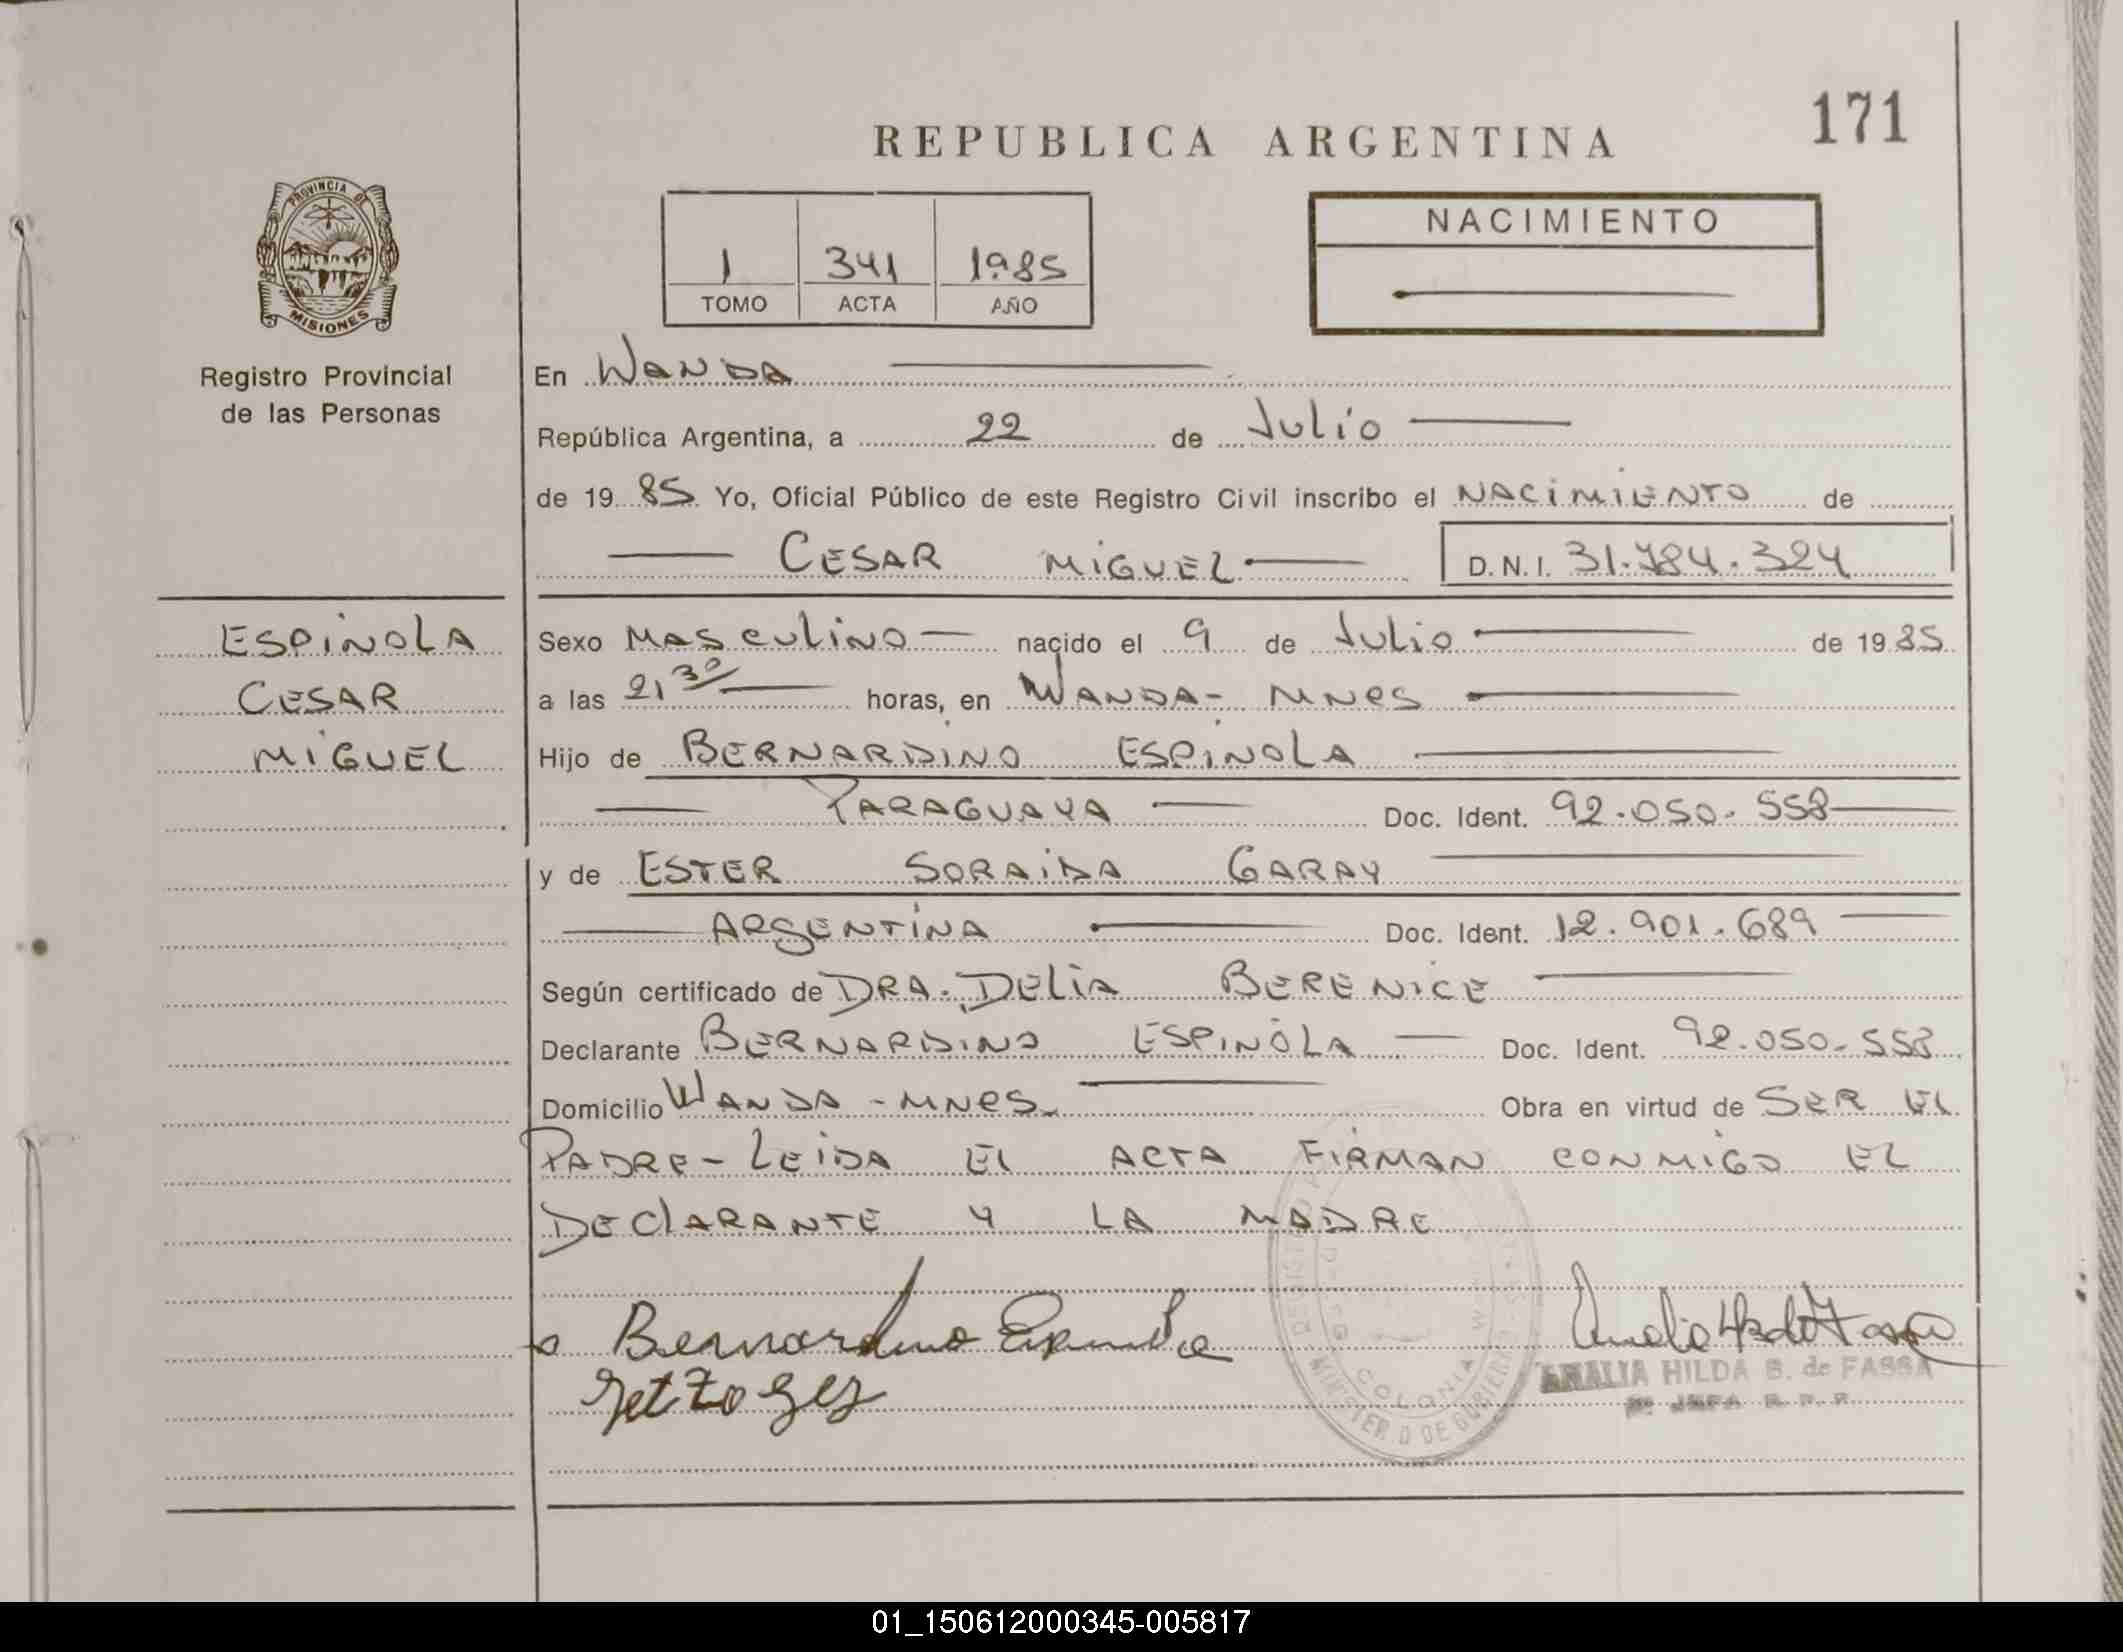 171
REPUBLICA ARGENTINA
PROVINCIA DE
MISIONES
Registro Provincial
de las Personas
1 341 1985
TOMO ACTA AÑO
NACIMIENTO
En WANDA
República Argentina, a 22 de Julio
de 19 85 Yo, Oficial Público de este Registro Civil inscribo el NACIMIENTO de
CESAR MIGUEL D.N.I. 31.784.324
ESPINOLA
CESAR
MIGUEL
Sexo MASCULINO nacido el 9 de Julio de 19 85
a las 21 30 horas, en WANDA - MNES
Hijo de BERNARDINO ESPINOLA
PARAGUAYA Doc. Ident. 92.050.558
y de ESTER SORAIDA GARAY
ARGENTINA Doc. Ident. 12.901.689
Según certificado de DRA. DELIA BERENICE
Declarante BERNARDINO ESPINOLA Doc. Ident. 92.050.558
Domicilio WANDA - MNES. Obra en virtud de SER EL
PADRE - LEIDA EL ACTA FIRMAN CONMIGO EL
DECLARANTE Y LA MADRE
Bernardino Espinola
AMALIA HILDA B. de FASSA
JEFA R. P. P.
COLONIA
MINISTERIO DE GOBIERNO
01_150612000345-005817